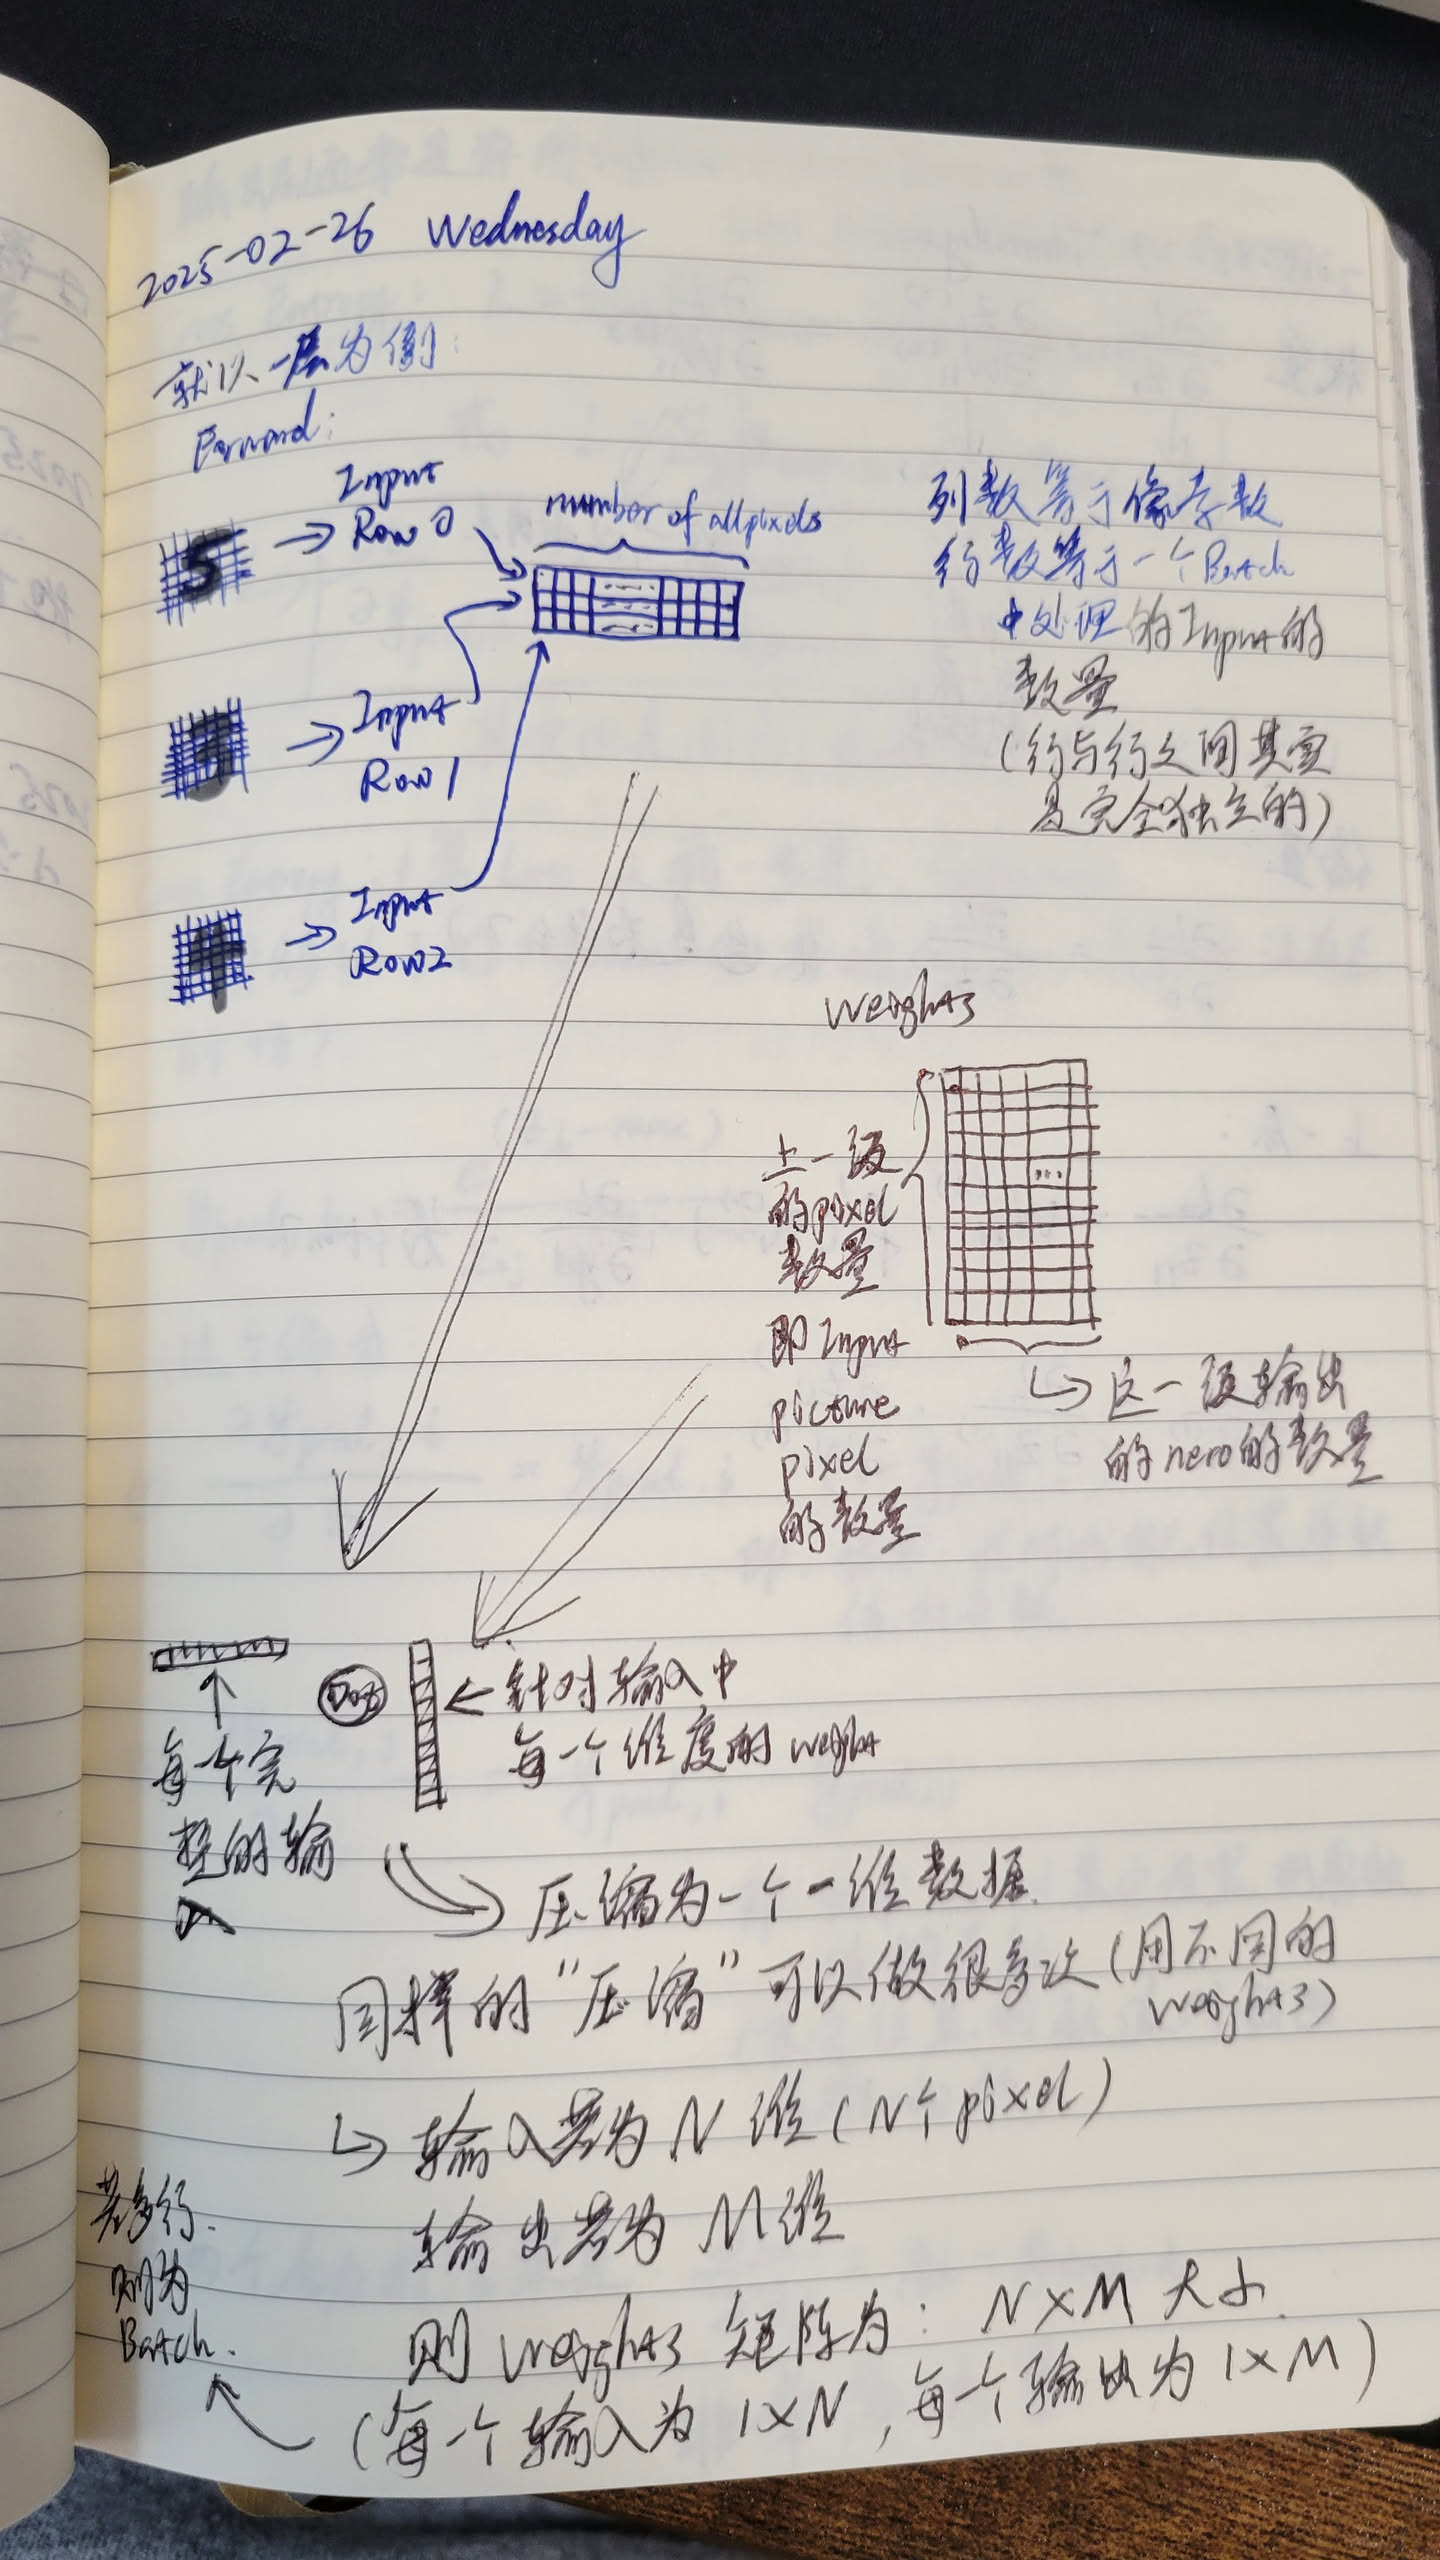 2025-02-26 Wednesday
就以一层为例:
Forward:
Input
Row 0
number of all pixels
列数等于像素数
行数等于一个Batch
中处理的Input的
数量
(行与行之间其实
是完全独立的)
Input
Row 1
Input
Row 2
Weights
上一级
的pixel
数量
即Input
picture
pixel
的数量
这一级输出
的nero的数量
Dot
针对输入中
每一个维度的weight
每个完
整的输
入
压缩为一个一维数据.
同样的"压缩"可以做很多次(用不同的
weights)
输入若为N维(N个pixel)
输出若为M维
则weights矩阵为: N×M大小.
(每一个输入为1×N,每一个输出为1×M)
若多行.
则为
Batch.